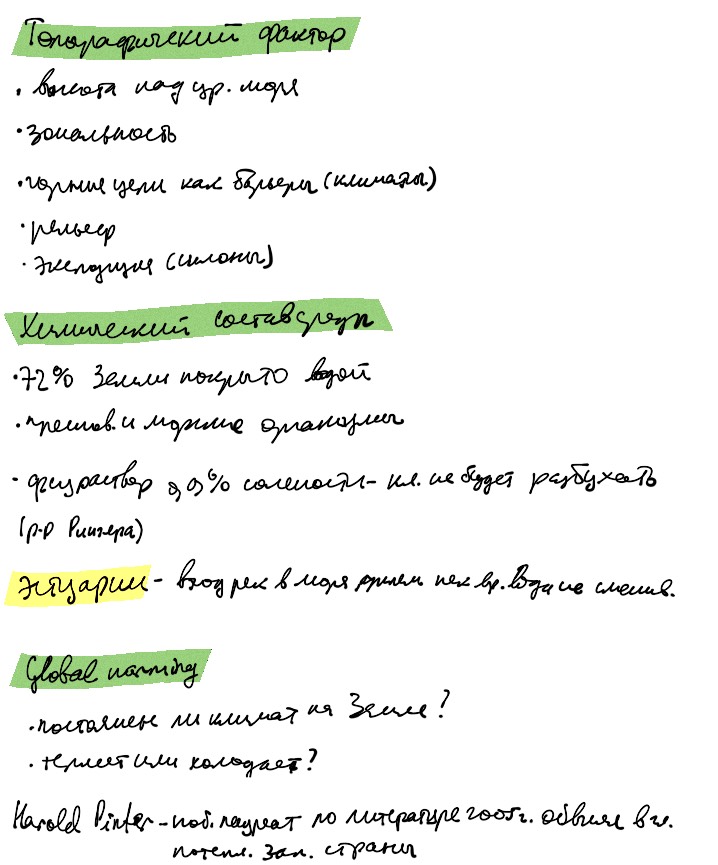 Топографический фактор
• высота над ур. моря
• зональность
• горные цепи как барьеры (климаты)
• рельеф
• экспозиция (склоны)
Химический состав среды
• 72% Земли покрыто водой
• преснов. и морские организмы
• физраствор 0,9% солености - кл. не будет разбухать
(р-р Рингера)
Эстуарии - вход рек в моря нек. вр. вода не смешив.
Global warming
• постоянен ли климат на Земле?
• теплеет или холодает?
Harold Pinter - ноб. лауреат по литературе 2005г. обвинял в гл.
потепл. Зап. страны